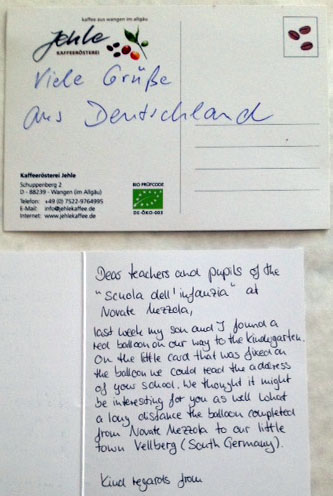 kaffee aus wangen im allgäu
Jehle
KAFFEERÖSTEREI
Viele Grüße
aus Deutschland
Kaffeerösterei Jehle
Schuppenberg 2
D - 88239 - Wangen (im Allgäu)
Telefon: +49 (0) 7522-9764995
E-Mail: info@jehlekaffee.de
Internet: www.jehlekaffee.de
BIO PRÜFCODE
DE-ÖKO-003
Dear teachers and pupils of the
"Scuola dell'infanzia" at
Novate Mezzola,
last week my son and I found a
red balloon on our way to the kindergarten.
On the little card that was fixed on
the balloon we could read the address
of your school. We thought it might
be interesting for you as well what
a long distance the balloon completed
from Novate Mezzola to our little
town Vellberg (South Germany).
Kind regards from